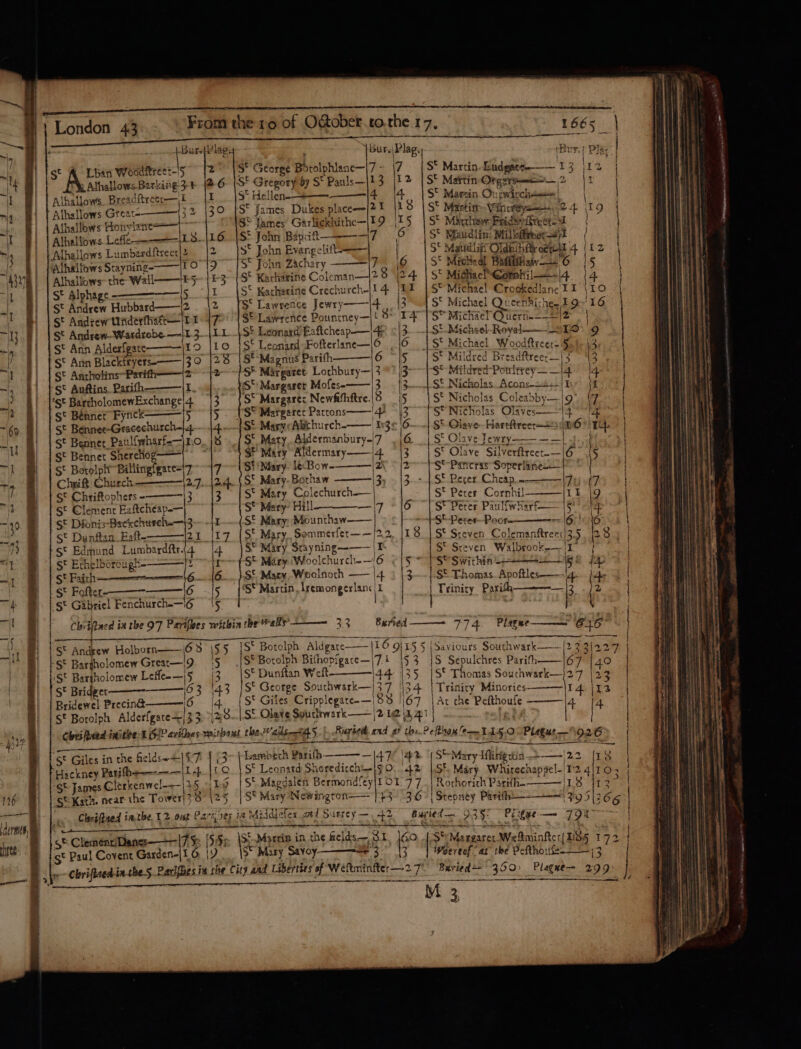 London 43 From the 10 of October to the 17. 1665
Bur. Plag. Bur. Plag. Bur. Plag.
St A Lban Woodſtreet-|5 |2
Alhallows Barking 3
Alhallows Breadſtreet—1 |1
Alhallows Great——32 |30
Alhallows Honylane——
Alhallows Leſſe——18 |16
Alhallows Lumbardſtreet|3 |2
Alhallows Stayning——10 |9
Alhallows the Wall——15 |13
St Alphage——5 |1
St Andrew Hubbard——2 |2
St Andrew Underſhaft—11 |7
St Andrew Wardrobe—13 |11
St Ann Alderſgate——10 |10
St Ann Blackfryers——30 |28
St Antholins Pariſh——2 |2
St Auſtins Pariſh——1
St Bartholomew Exchange|4 |3
St Bennet Fynck——5
St Bennet Gracechurch-|4 |4
St Bennet Paulſwharf—10 |8
St Bennet Sherehog——
St Botolph Billingſgate-|7 |7
Chriſt Church——27 |24
St Chriſtophers——3 |3
St Clement Eaſtcheap—
St Dionis Backchurch—3 |1
St Dunſtan Eaſt——21 |17
St Edmund Lumbardſtr.|4 |4
St Ethelborough——
St Faith——6 |6
St Foſter——6 |5
St Gabriel Fenchurch—6 |5
St George Botolphlane—7 |7
St Gregory by St Pauls—13 |12
St Hellen——4 |4
St James Dukes place—21 |18
St James Garlickhithe—19 |15
St John Baptiſt——7 |6
St John Evangeliſt——
St John Zachary——13 |12
St Katharine Coleman—28 |24
St Katharine Crechurch-|14 |11
St Lawrence Jewry——4 |3
St Lawrence Pountney—18 |14
St Leonard Eaſtcheap—4 |3
St Leonard Foſterlane—6 |6
St Magnus Pariſh——6 |5
St Margaret Lothbury—3 |3
St Margaret Moſes——3 |3
St Margaret Newfiſhſtre. 8 |5
St Margaret Pattons——4 |3
St Mary Abchurch——
St Mary Aldermanbury-7 |6
St Mary Aldermary——4 |3
St Mary le Bow——2 |2
St Mary Bothaw——3 |3
St Mary Colechurch—
St Mary Hill——7 |6
St Mary Mounthaw——
St Mary Sommerſet——22 |18
St Mary Stayning——1
St Mary Woolchurch—6 |5
St Mary Woolnoth——4 |3
St Martin Iremongerlane|1
St Martin Ludgate——13 |12
St Martin Orgars——2 |1
St Martin Outwitch——
St Martin Vintrey——24 |19
St Matthew Fridayſtreet-1
St Maudlin Milkſtreet
St Maudlin Oldfiſhſtreet|14 |12
St Michael Baſſiſhaw——6 |5
St Michael Cornhil——4 |4
St Michael Crookedlane 11 |10
St Michael Queenhithe 19 |16
St Michael Quern——2
St Michael Royal——10 |9
St Michael Woodſtreet- 5
St Mildred Breadſtreet—3 |3
St Mildred Poultrey——4 |4
St Nicholas Acons——1 |1
St Nicholas Coleabby—9 |7
St Nicholas Olaves——
St Olave Hartſtreet——16 |14
St Olave Jewry——
St Olave Silverſtreet—6 |5
St Pancras Soperlane—
St Peter Cheap——7 |7
St Peter Cornhil——11 |9
St Peter Paulſwharf—5
St Peter Poor——6 |6
St Steven Colemanſtreet|35 |28
St Steven Walbrook—1
St Swithin
St Thomas Apoſtles——4 |4
Trinity Pariſh——3 |2
Chriſtned in the 97 Pariſhes within the Walls——33 Buried——774 Plague——646
St Andrew Holborn——68 |55
St Bartholomew Great—9 |5
St Bartholomew Leſſe—5 |3
St Bridget——63 |43
Bridewel Precinct——6 |4
St Botolph Alderſgate—33 |28
St Botolph Aldgate——169 |155
St Botolph Biſhopſgate—71 |53
St Dunſtan Weſt——44 |35
St George Southwark—37 |34
St Giles Cripplegate—88 |67
St Olave Southwark——
Saviours Southwark——233 |227
S Sepulchres Pariſh——67 |40
St Thomas Southwark—27 |23
Trinity Minories——14 |12
At the Peſthouſe——4 |4
Chriſtned in the 16 Pariſhes without the Walls—45 Buried, and at the Peſthouſe—1150 Plague—926
St Giles in the fields—57
Hackney Pariſh——14 |10
St James Clerkenwel——25 |16
St Kath. near the Tower|28 |25
Lambeth Pariſh——47 |42
St Leonard Shoreditch—
St Magdalen Bermondſey|101 |77
St Mary Newington——
St Mary Iſlington——22 |18
St Mary Whitechappel-124 |103
Rothorith Pariſh——18 |13
Stepney Pariſh——395 |366
Chriſtned in the 12 out Pariſhes in Middleſex and Surrey—42 Buried—938 Plague—794
St Clement Danes——75 |55
St Paul Covent Garden-|16 |9
St Martin in the fields—81 |60
St Mary Savoy——3 |3
St Margaret Weſtminſter|185 |172
Whereof at the Peſthouſe——13
Chriſtned in the 5 Pariſhes in the City and Liberties of Weſtminſter—27 Buried—360 Plague—299
M 3